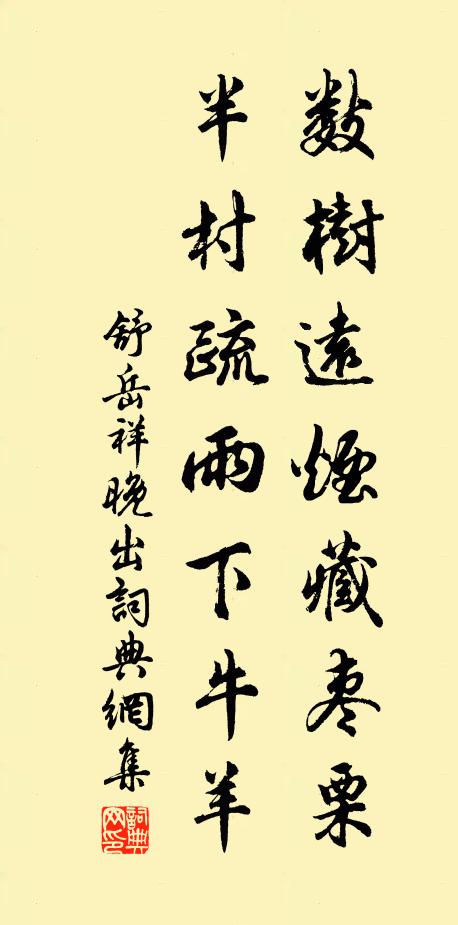 數樹遠煙藏棗栗
半村疏雨下牛羊
舒岳祥晚出詞典網集
詞典網印